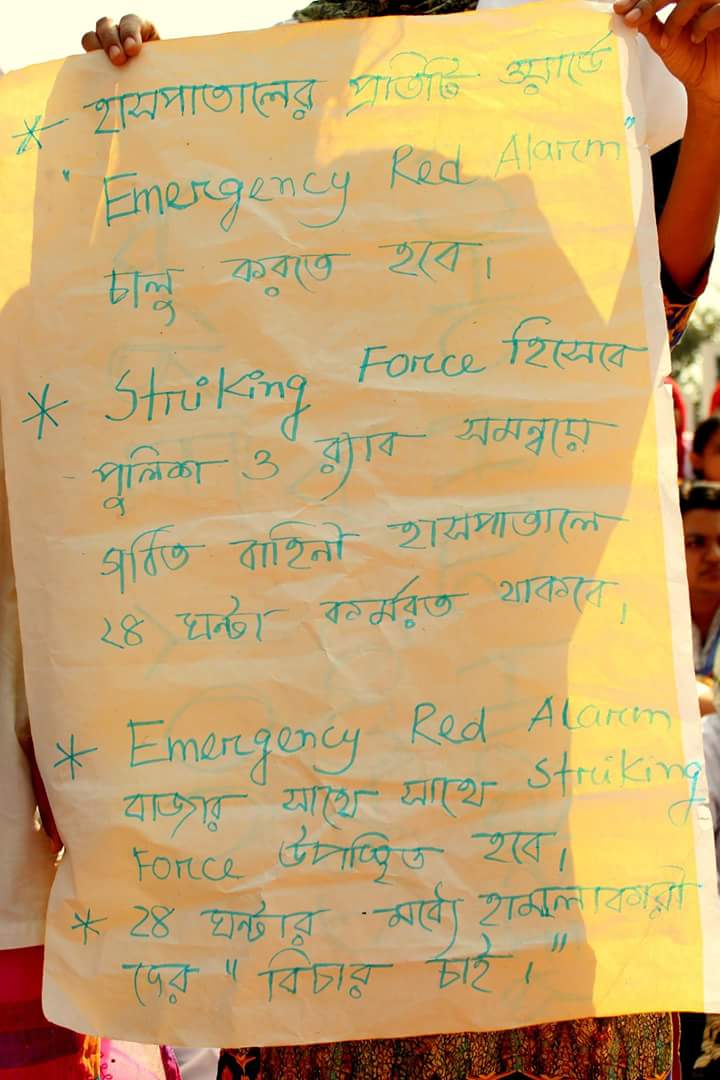 * হাসপাতালের প্রতিটি ওয়ার্ডে
"Emergency Red Alarm"
চালু করতে হবে।
* Striking Force হিসেবে
- পুলিশ ও র‍্যাব সমন্বয়ে
গঠিত বাহিনী হাসপাতালে
২৪ ঘন্টা কর্মরত থাকবে।
* Emergency Red Alarm
বাজার সাথে সাথে Striking
Force উপস্থিত হবে।
* ২৪ ঘন্টার মধ্যে হামলাকারী
দের "বিচার চাই।"